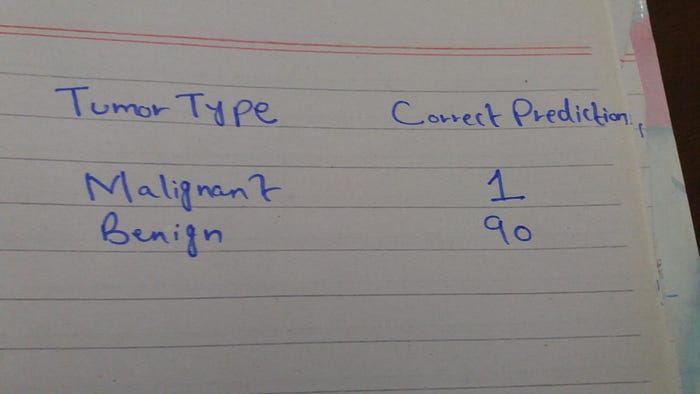 Tumor Type Correct Predictions
Malignant 1
Benign 90